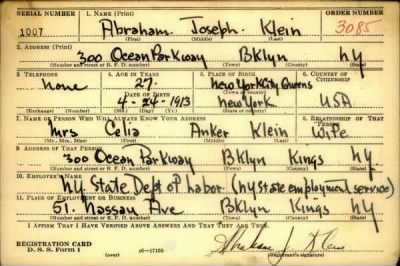 SERIAL NUMBER 1. NAME (Print) ORDER NUMBER
1007 Abraham Joseph Klein 3085
(First) (Middle) (Last)
2. ADDRESS (Print)
300 Ocean Parkway Bklyn NY
(Number and street or R. F. D. number) (Town) (County) (State)
3. TELEPHONE 4. AGE IN YEARS 5. PLACE OF BIRTH 6. COUNTRY OF CITIZENSHIP
none 27 New York City Queens
DATE OF BIRTH (Town or county)
4-24-1913 New York USA
(Exchange) (Number) (Mo.) (Day) (Yr.) (State or country)
7. NAME OF PERSON WHO WILL ALWAYS KNOW YOUR ADDRESS 8. RELATIONSHIP OF THAT PERSON
Mrs Celia Anker Klein Wife
(Mr., Mrs., Miss) (First) (Middle) (Last)
9. ADDRESS OF THAT PERSON
300 Ocean Parkway Bklyn Kings NY
(Number and street or R. F. D. number) (Town) (County) (State)
10. EMPLOYER'S NAME
NY State Dept of Labor (NY state employment service)
11. PLACE OF EMPLOYMENT OR BUSINESS
51. Nassau Ave Bklyn Kings NY
(Number and street or R. F. D. number) (Town) (County) (State)
I AFFIRM THAT I HAVE VERIFIED ABOVE ANSWERS AND THAT THEY ARE TRUE.
REGISTRATION CARD
D. S. S. Form 1 (over) 16-17105 Abraham J. Klein
(Registrant's signature)